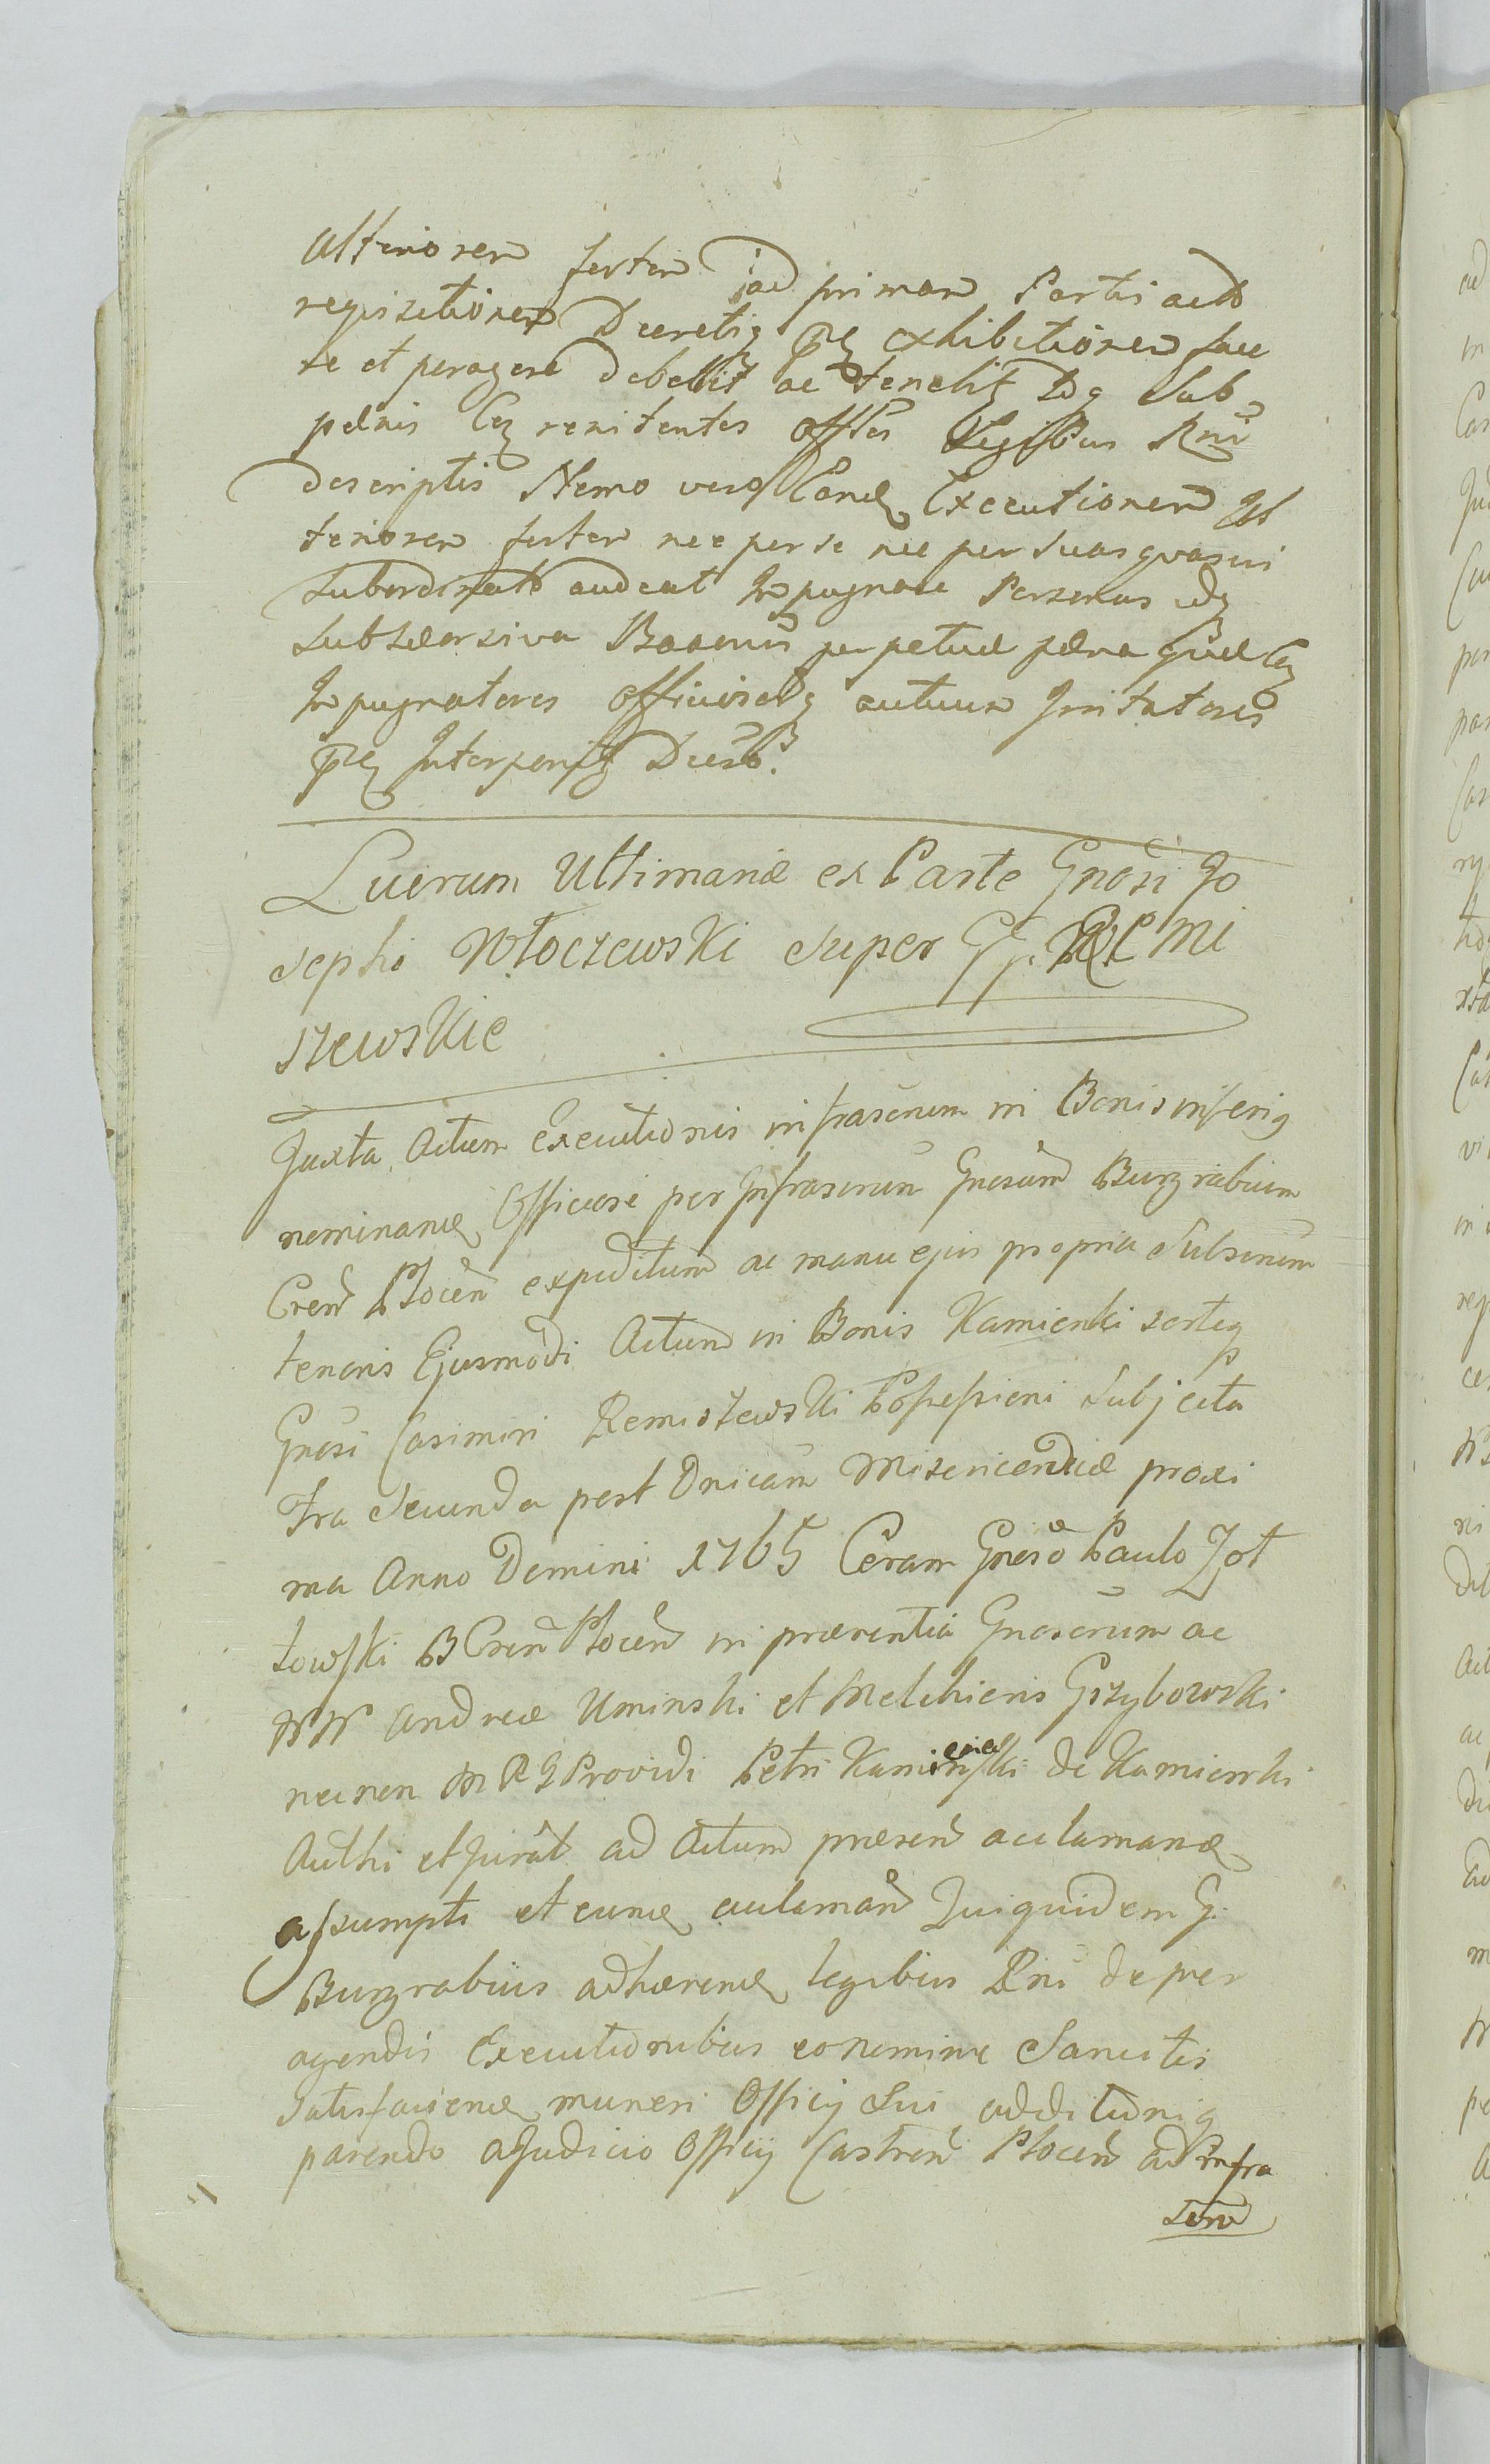 Ulteriorem fortem ad primam Partis actō
requisitionem Decretiq pñtis exhibitionem face
re et peragere debebit ac tenebit Idq sub
pœnis Con renitentes offles Legibus Rni
descriptis Nemo vero Eand Executionem Ul
teriorem fortem nec per se nec per suas quasvis
subordinatō audeat Impugnare Personas idq
sub
Bannis perpetuæ pœna
Impugnatores officiosq actuum Irritatores
pñtis Interponitq Decrō.
Lucrum Ultimariæ ex Parte Gnosi Jo
sephi Włoczewski super GG. REMi
szewskie
Juxta Actum Executionis infrascrum in Bonis inferiq
nominand Officiose per Infrascrum Gnosum Burgrabium
Cren Plocen expeditum ac manu ejus propria Subscrum
tenoris Ejusmodi Actum in Bonis Kamienki sorteq
Gnosi Casimiri Remiszewski Possessioni Subjecta
Fra Secunda post Dnicam Misericordiæ proxi
ma Anno Domini 1765 Coram Gnoso Paulo Zot
towski B Cren Plocen in præsentia Gnosorum ac
NN Andreæ Uminski et Melchioris Grzybowski
necnon M R G Providi Petri Kaminski de Kamienki
Authi et jurat ad Actum præsen acclamand
assumpti et eund acclaman Qui quidem G.
Burgrabius adhærend legibus Rni de per
agendis Executionibus eo nomine Sancitis
satisfaciend muneri Officij Sui additioniq
parendo a Judicio Officij Castren Plocen ad Infra
scrm